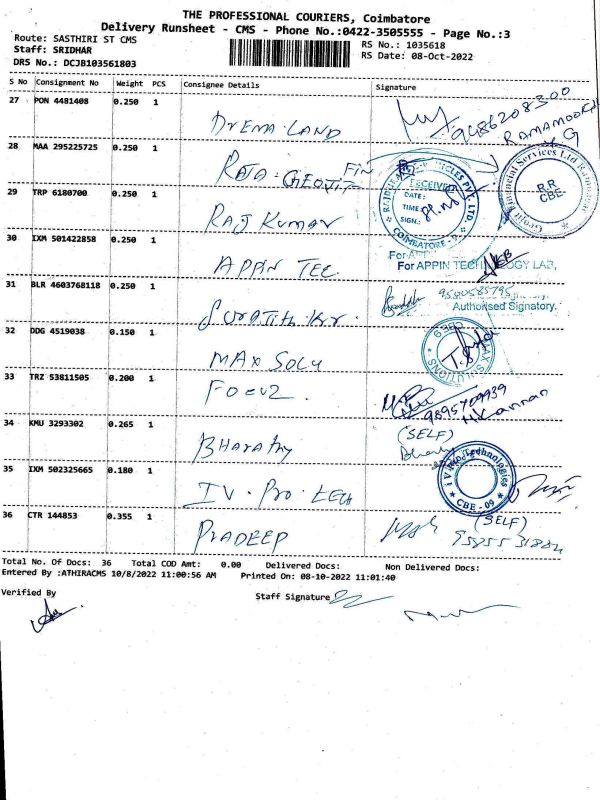 THE PROFESSIONAL COURIERS, Coimbatore
Delivery Runsheet - CMS - Phone No.:0422-3505555 - Page No.:3
Route: SASTHIRI ST CMS
RS No.: 1035618
Staff: SRIDHAR
RS Date: 08-Oct-2022
DRS No.: DCJB103561803
S No Consignment No Weight PCS Consignee Details Signature
27 PON 4481408 0.250 1 DREMA LAND 9486208300
RAMAMOORTHY G
28 MAA 295225725 0.250 1 RAJA GEOJIT FIN
RECEIVED
DATE:
TIME
SIGN:
COIMBATORE
Geojit Financial Services Ltd
R.R
CBE
29 TRP 6180700 0.250 1 RAJ KUMAR
30 IXM 501422858 0.250 1 APPIN TEC
For APPIN TECHNOLOGY LAB,
31 BLR 4603768118 0.250 1 SURAJITH KR. 9500585795
Authorised Signatory.
32 DDG 4519038 0.150 1 MAX SOLU
33 TRZ 53811505 0.200 1 FOCUZ. 9895709939
H Kannan
34 KMU 3293302 0.265 1 BHARATHY (SELF)
35 IXM 502325665 0.180 1 IV. PRO. TECH
CBE - 09
36 CTR 144853 0.355 1 PRADEEP (SELF)
Total No. Of Docs: 36 Total COD Amt: 0.00 Delivered Docs: Non Delivered Docs:
Entered By :ATHIRACMS 10/8/2022 11:00:56 AM Printed On: 08-10-2022 11:01:40
Verified By
Staff Signature